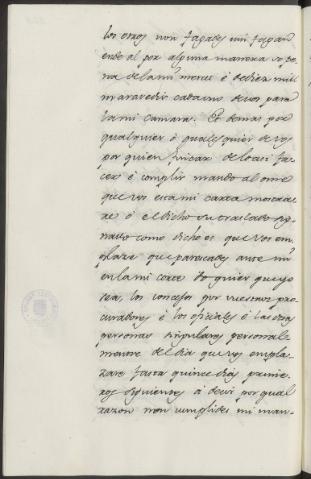 los otros non fagades nin fagan
ende al por alguna manera so pe
na de la mi merce e de diez mill
maravedis cada uno de vos para
la mi camara. E demas por
qualquier o qualesquier de vos
por quien fincar de lo asi fa
cer e complir mando al ome
que vos esta mi carta mostra
re o el dicho su traslado sig
nado como dicho es que vos em
plaze que parescades ante mi
en la mi corte do quier que yo
sea, los concejos por vuestros pro
curadores e los oficiales e las otras
personas singulares personal
mente del dia que vos empla
zare fasta quince dias prime
ros siguientes a decir por qual
razon non cumplides mi man-